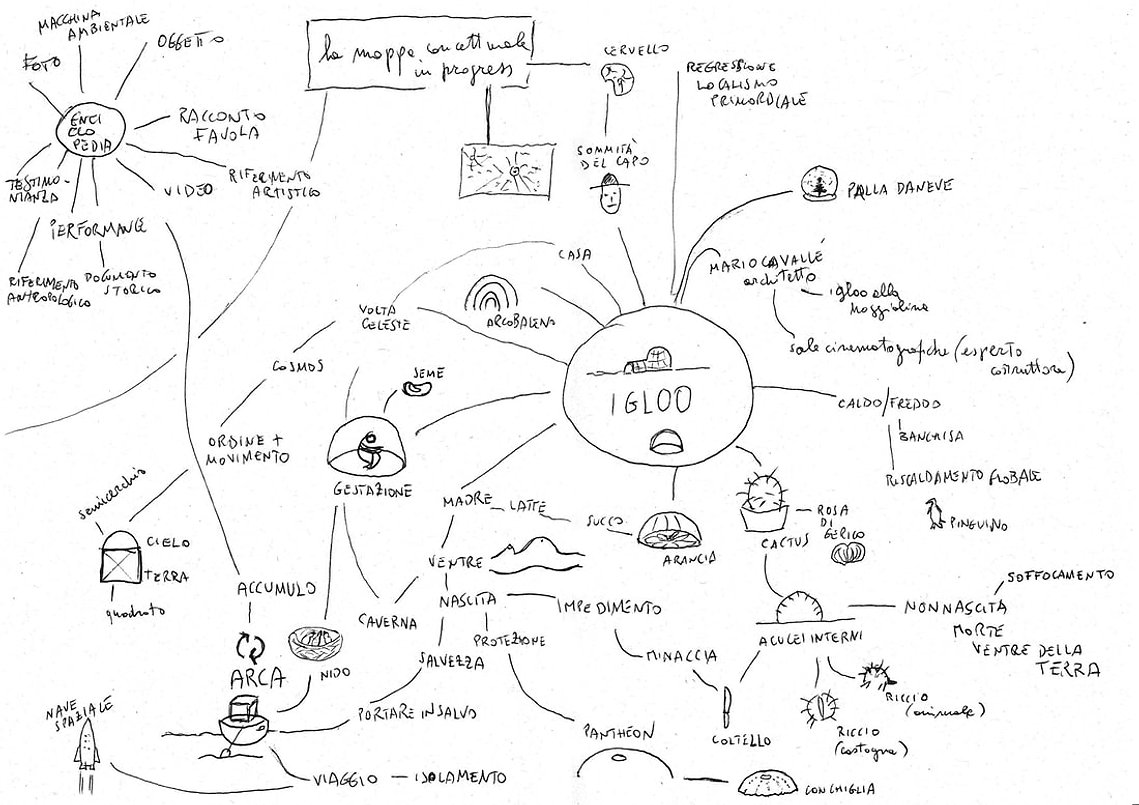 MACCHINA
AMBIENTALE
OGGETTO
FOTO
ENCI
CLO
PEDIA
RACCONTO
FAVOLA
RIFERIMENTO
ARTISTICO
VIDEO
TESTIMO-
NIANZA
PERFORMANCE
RIFERIMENTO
ANTROPOLOGICO
DOCUMENTO
STORICO
la mappa concettuale
in progress
CERVELLO
SOMMITÀ
DEL CAPO
REGRESSIONE
LOCALISMO
PRIMORDIALE
PALLA DA NEVE
MARIO CAVALLÉ
architetto
igloo alla
sale cinematografiche (esperto
costruttore)
CASA
ARCOBALENO
VOLTA
CELESTE
COSMOS
ORDINE +
MOVIMENTO
SEME
GESTAZIONE
IGLOO
CALDO/FREDDO
BANCHISA
RISCALDAMENTO GLOBALE
PINGUINO
semicerchio
CIELO
TERRA
quadrato
MADRE
LATTE
SUCCO
ARANCIA
CACTUS
ROSA
DI
GERICO
VENTRE
NASCITA
IMPEDIMENTO
CAVERNA
PROTEZIONE
SALVEZZA
MINACCIA
ACULEI INTERNI
NON NASCITA
SOFFOCAMENTO
MORTE
VENTRE DELLA
TERRA
ACCUMULO
ARCA
NIDO
PORTARE IN SALVO
NAVE
SPAZIALE
VIAGGIO — ISOLAMENTO
PANTHEON
CONCHIGLIA
COLTELLO
RICCIO
(castagna)
RICCIO
(animale)